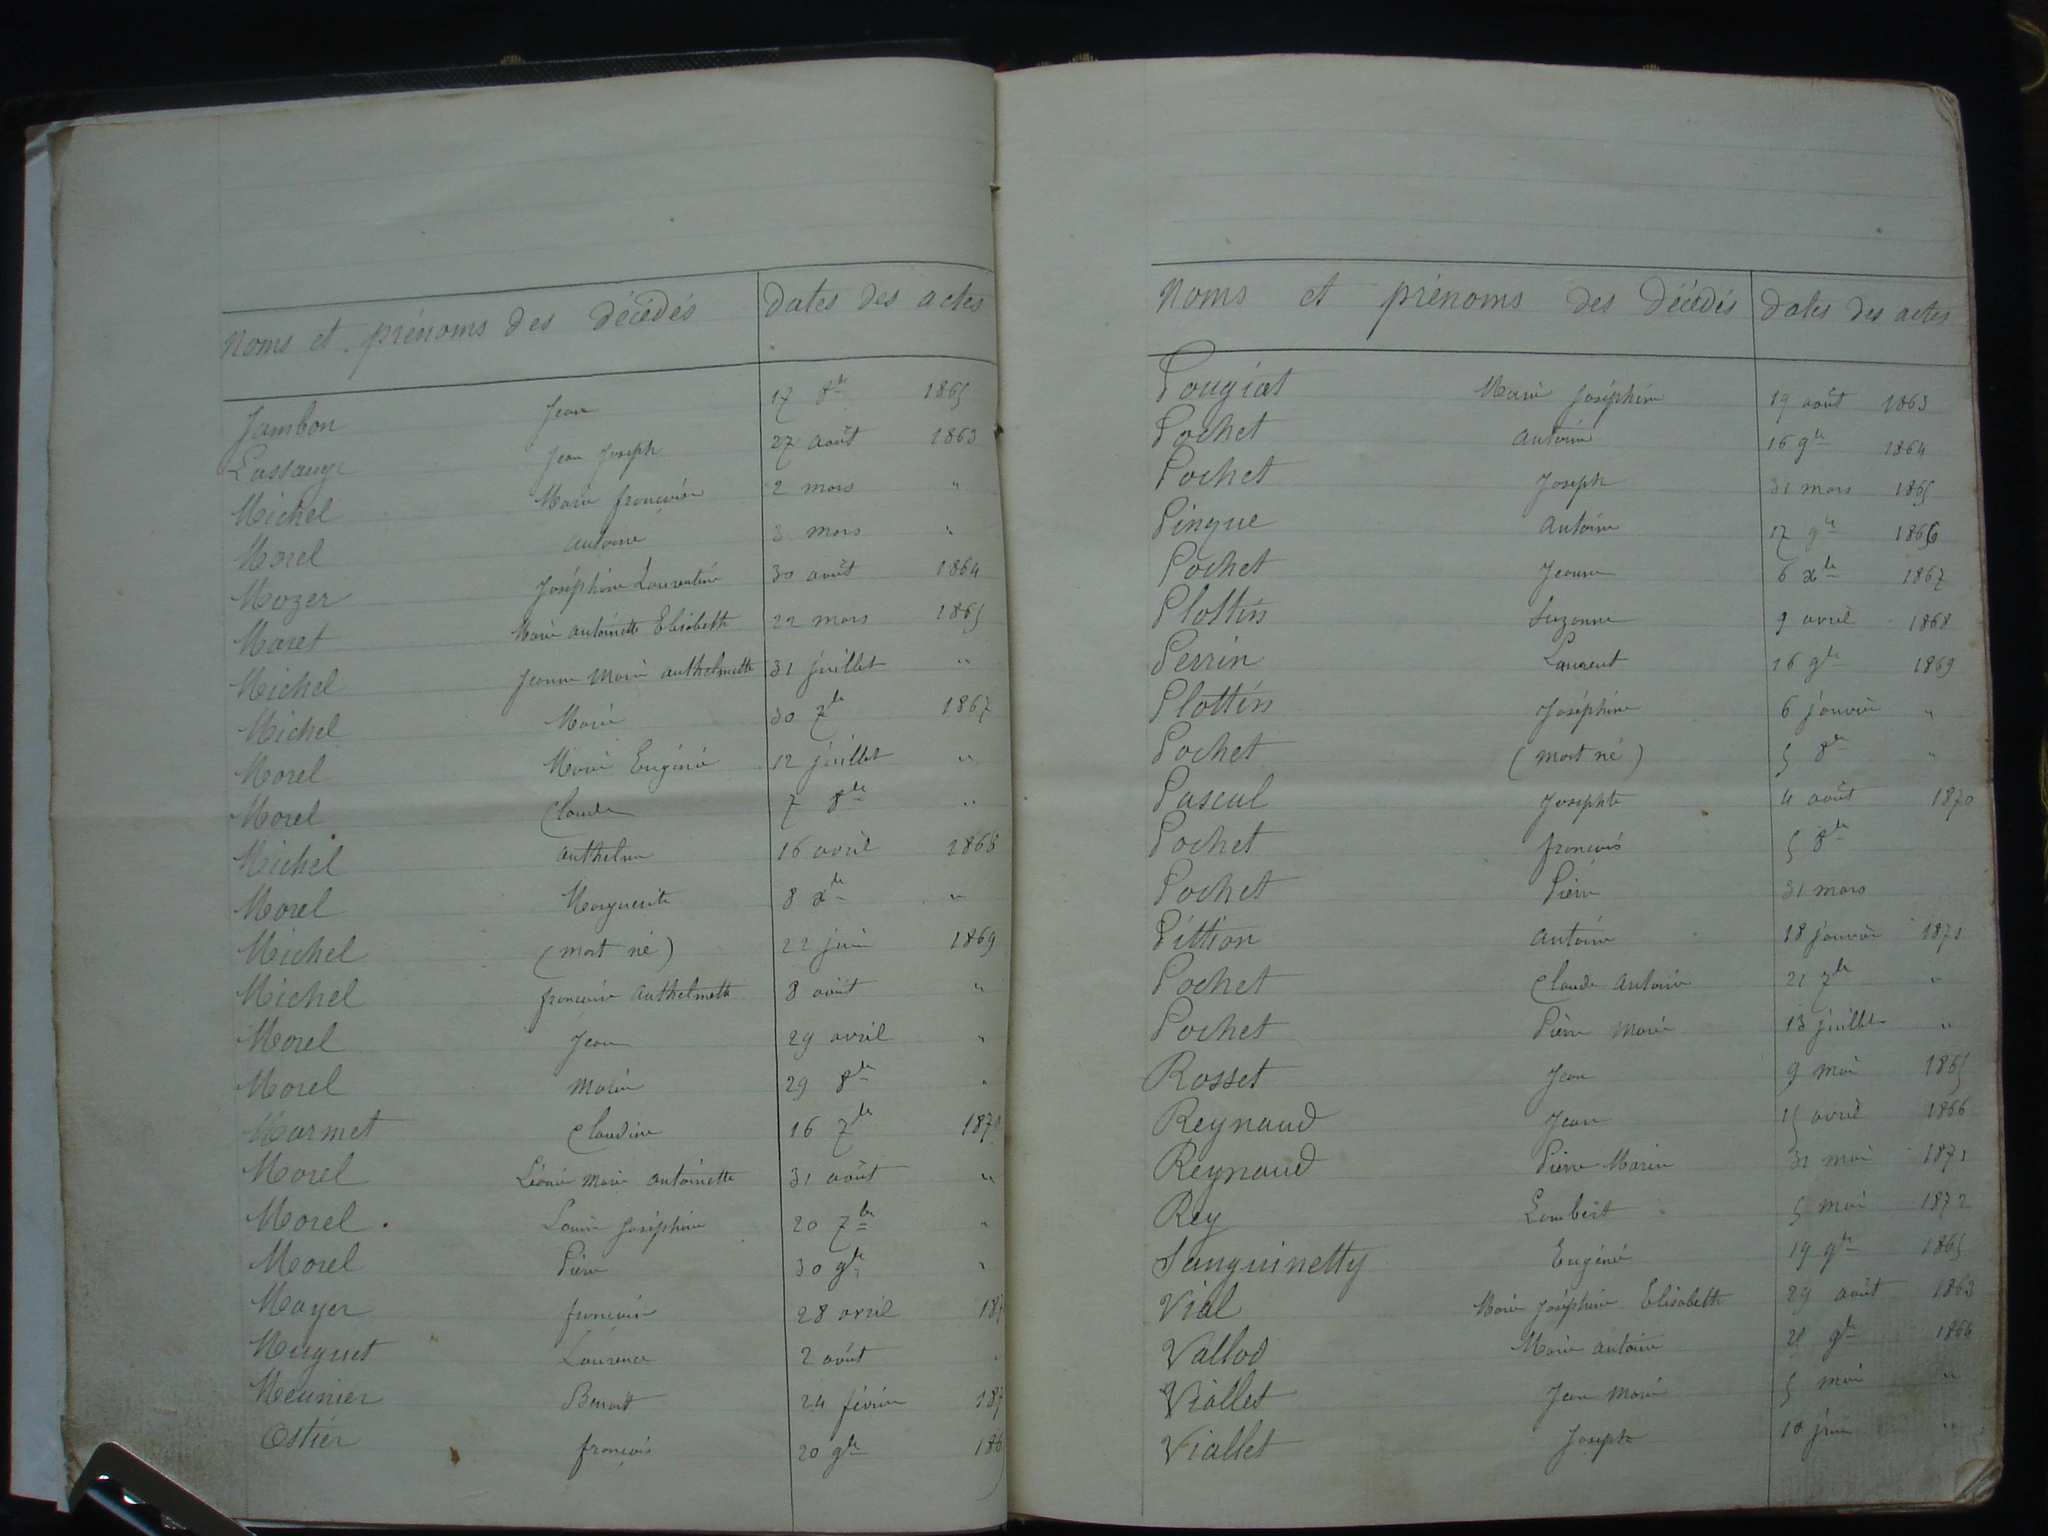 Noms et prénoms des décédés Dates des actes
Jambon Jean 17 8bre 1865
Lassauge Jean Joseph 27 août 1863
Michel Marie françoise 2 mars "
Morel Antoine 3 mars "
Mozer Joséphine Laurentine 30 août 1864
Maret Marie Antoinette Elisabeth 22 mars 1865
Michel Jeanne Marie Anthelmette 31 juillet "
Michel Marie 30 7bre 1867
Morel Marie Eugénie 12 juillet "
Morel Claude 7 8bre "
Michel Anthelme 16 avril 1868
Morel Marguerite 8 xbre "
Michel (mort né) 22 juin 1869
Michel françoise Anthelmette 8 août "
Morel Jean 29 avril "
Morel Marie 29 8bre "
Marmet Claudine 16 7bre 187
Morel Léonie Marie Antoinette 31 août "
Morel Louise Joséphine 20 7bre "
Morel Pierre 30 9bre "
Mayer françoise 28 avril 187
Muguet Laurence 2 août
Meunier Benoît 24 février 187
Ostier françois 20 9bre 186
Noms et prénoms des décédés Dates des actes
Pougiat Marie Joséphine 19 août 1863
Pochet Antoine 16 9bre 1864
Pochet Joseph 31 mars 1865
Pingue Antoine 17 9bre 1866
Pochet Jeanne 6 xbre 1867
Plottin Suzanne 9 avril 1868
Perrin Laurent 16 9bre 1869
Plottin Joséphine 6 janvier "
Pochet (mort né) 5 8bre "
Pascal Josephte 4 août 1870
Pochet françois 5 8bre
Pochet Pierre 31 mars
Pittion Antoine 18 janvier 1871
Pochet Claude Antoine 21 7bre "
Pochet Pierre Marie 13 juillet "
Rosset Jean 9 mai 1865
Reynaud Jean 15 avril 1866
Reynaud Pierre Marie 31 mai 1871
Rey Lambert 5 mai 1872
Sanguinetty Eugénie 19 9bre 1865
Vial Marie Joséphine Elisabeth 29 août 1863
Vallod Marie Antoine 21 9bre 1864
Viallet Jean Marie 5 mai "
Viallet Joseph 10 juin "